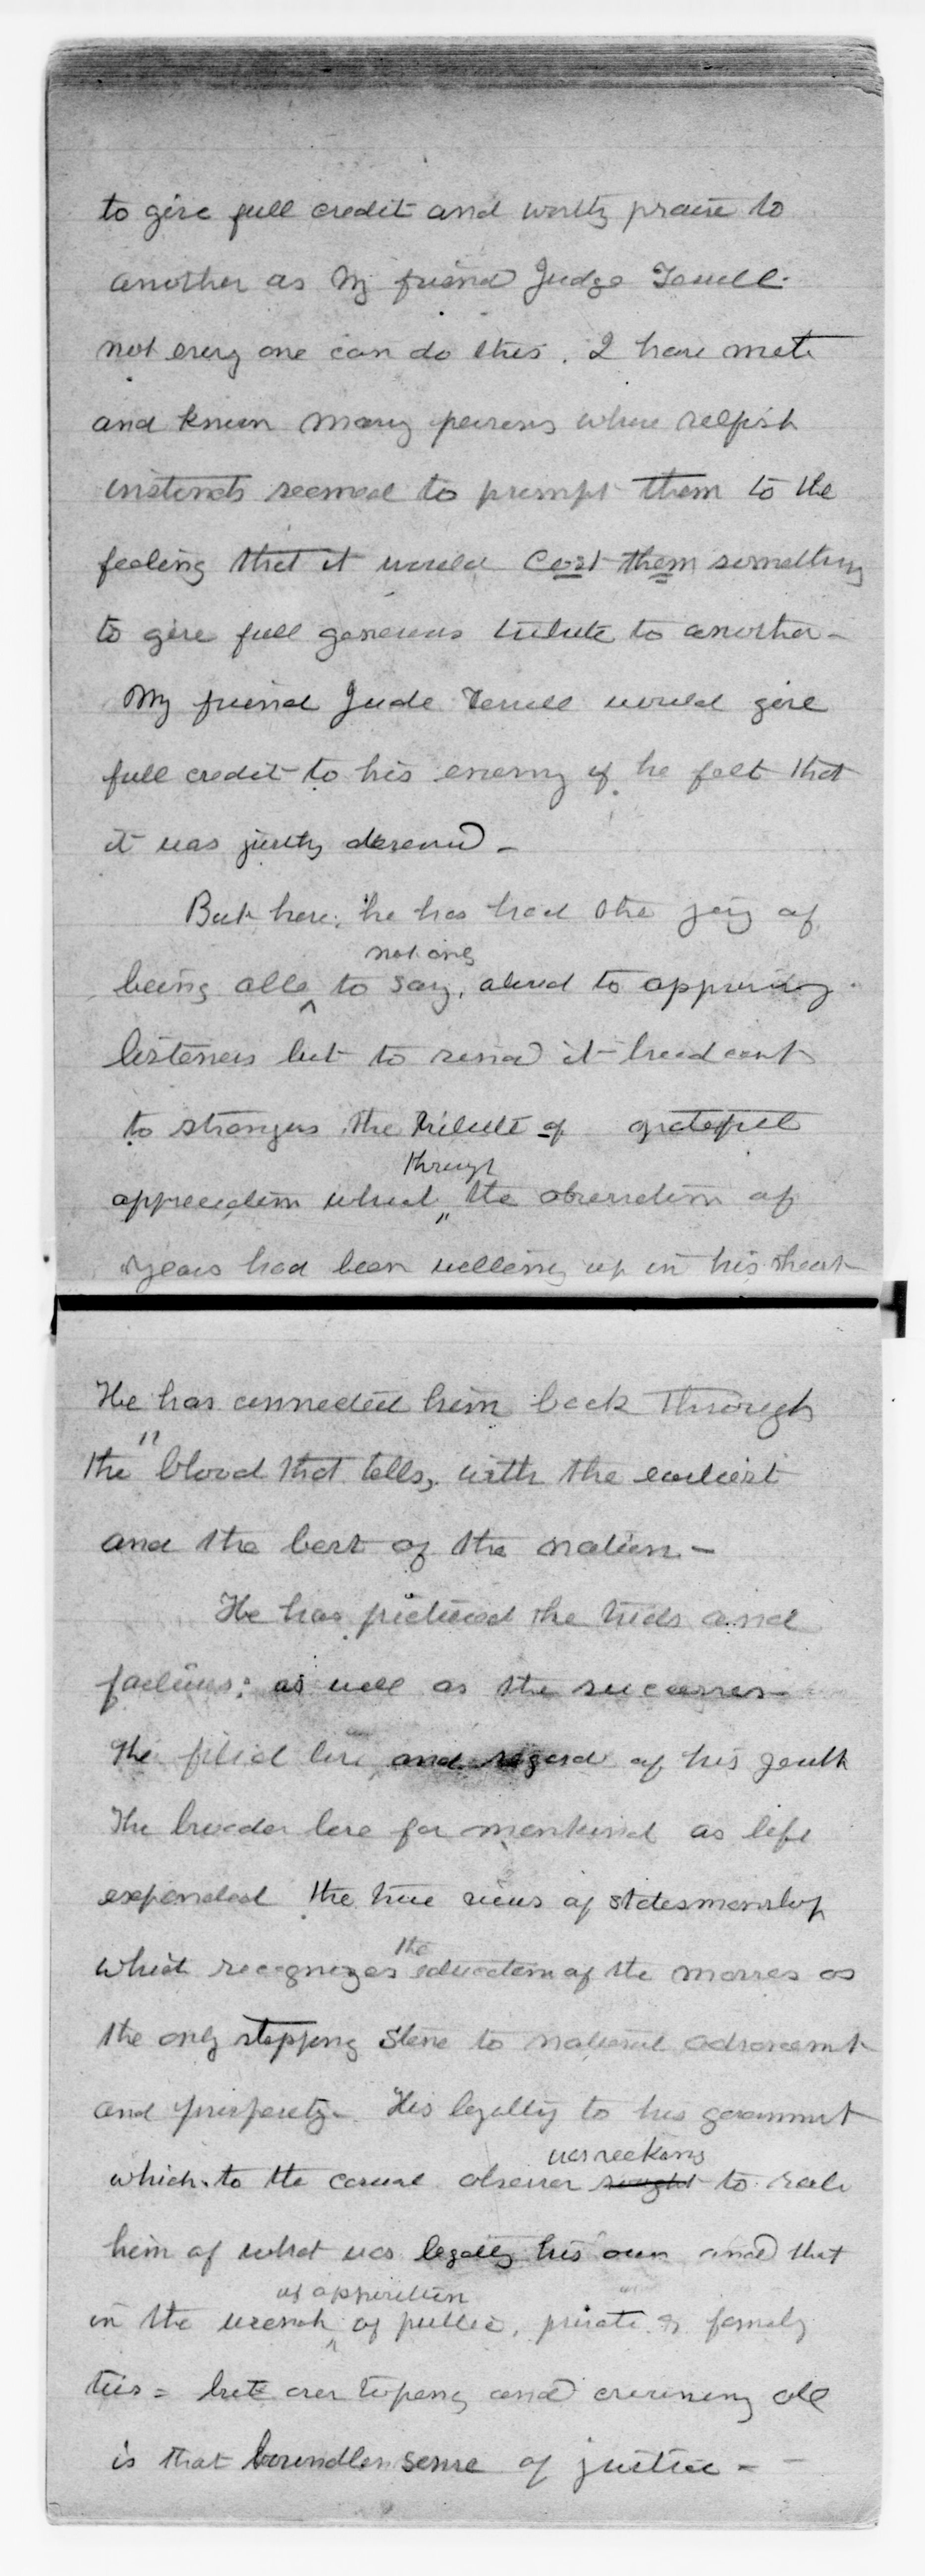 to give full credit and worthy praise to
another as My friend Judge Terrell.
not every one can do this. I have mett
and known many persons whose selfish
instincts seemed to prompt them to the
feeling that it would cost them something
to give full generous tribute to another -
My friend Jude Terrell would give
full credit to his enemy if he felt that
it was justly deserved -
But here, he has had the joy of
not only
being able ^ to say, aloud to approving
listeners but to send it broadcast
to strangers the tribute of grateful
through
appreciation which " the observation of
years had been welling up in his heart
He has connected him back through
the " blood that tells, with the earliest
and the best of the nation -
He has pictured the trials and
failures; as well as the successes -
The filial love, and regard of his youth
The broader love for mankind as life
expanded the true views of statesmanship
the
which recognizes education of the masses as
the only stepping stone to national advancement
and prosperity - His loyalty to his government
was seeking
which to the casual observer sought to rob
him of what was legally his own and that
of apposition
in the wrench ^ of public, private & family
ties = but over toping and crowning all
is that boundless sense of justice - -